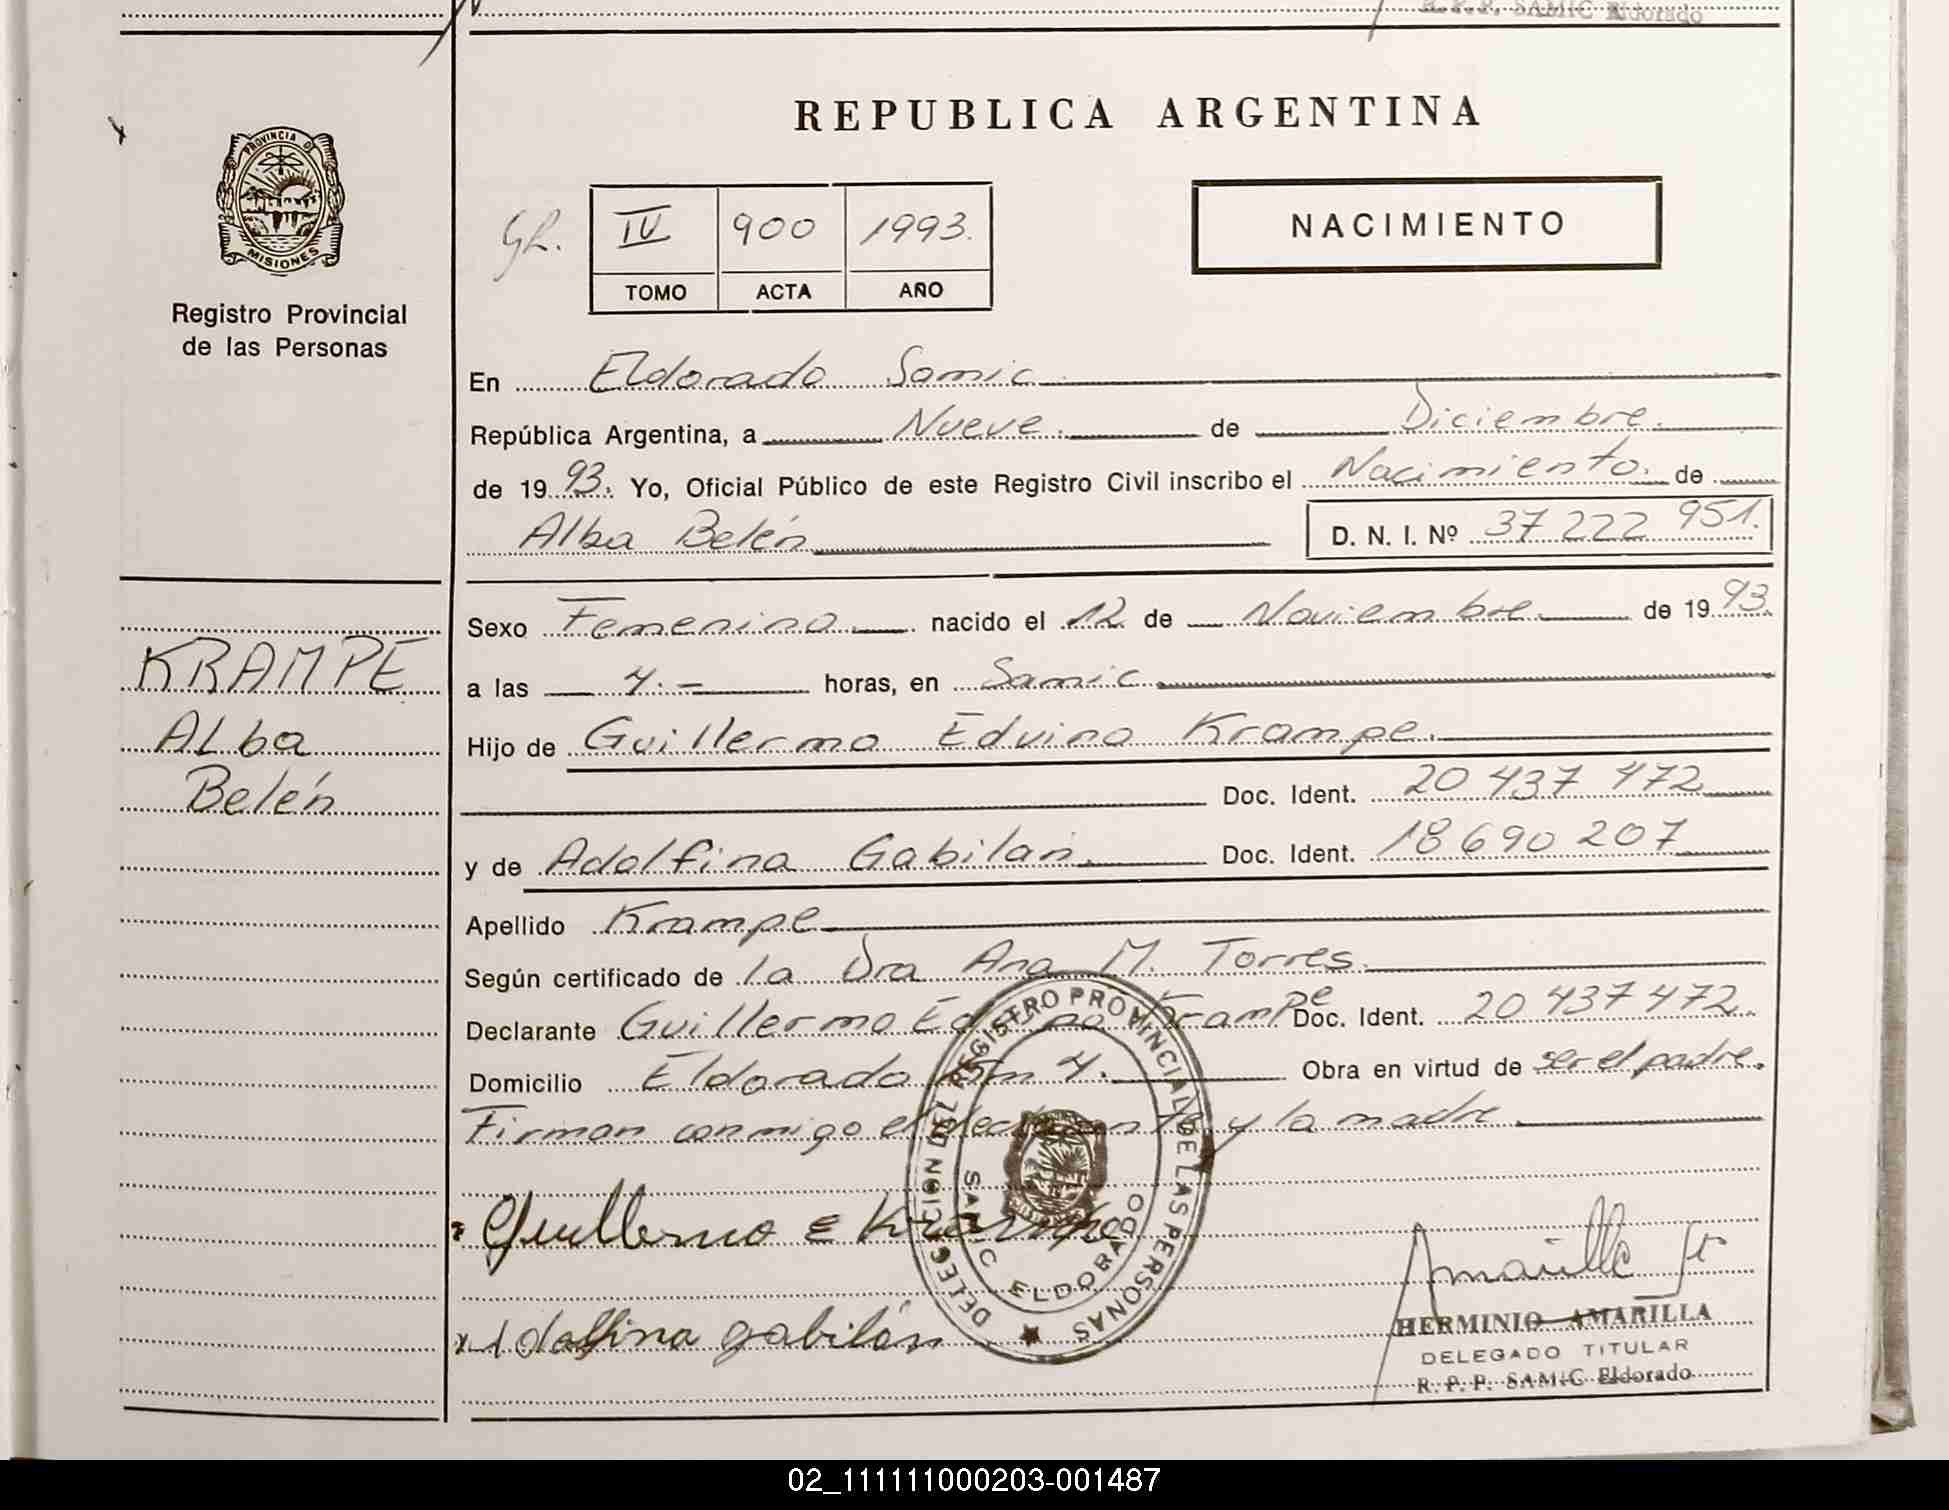 R.P.P. SAMIC Eldorado
REPUBLICA ARGENTINA
PROVINCIA DE MISIONES
Registro Provincial
de las Personas
IV 900 1993.
TOMO ACTA AÑO
NACIMIENTO
En Eldorado Samic
República Argentina, a Nueve. de Diciembre.
de 1993. Yo, Oficial Público de este Registro Civil inscribo el Nacimiento. de
Alba Belén D. N. I. Nº 37 222 951.
Sexo Femenino. nacido el 12 de Noviembre. de 1993.
KRAMPE
Alba
Belén
a las 4.- horas, en Samic.
Hijo de Guillermo Edvino Krampe.
Doc. Ident. 20 437 472
y de Adolfina Gabilán. Doc. Ident. 18 690 207
Apellido Krampe
Según certificado de la Dra Ana M. Torres.
Declarante Guillermo Edvino Krampe Doc. Ident. 20 437 472.
Domicilio Eldorado Km 4. Obra en virtud de ser el padre.
Firman conmigo el declarante y la madre
DELEGACION DEL REGISTRO PROVINCIAL DE LAS PERSONAS
SAMIC ELDORADO
Guillermo E Krampe
Adolfina gabilán
HERMINIO AMARILLA
DELEGADO TITULAR
R. P. P. SAMIC Eldorado
02_111111000203-001487